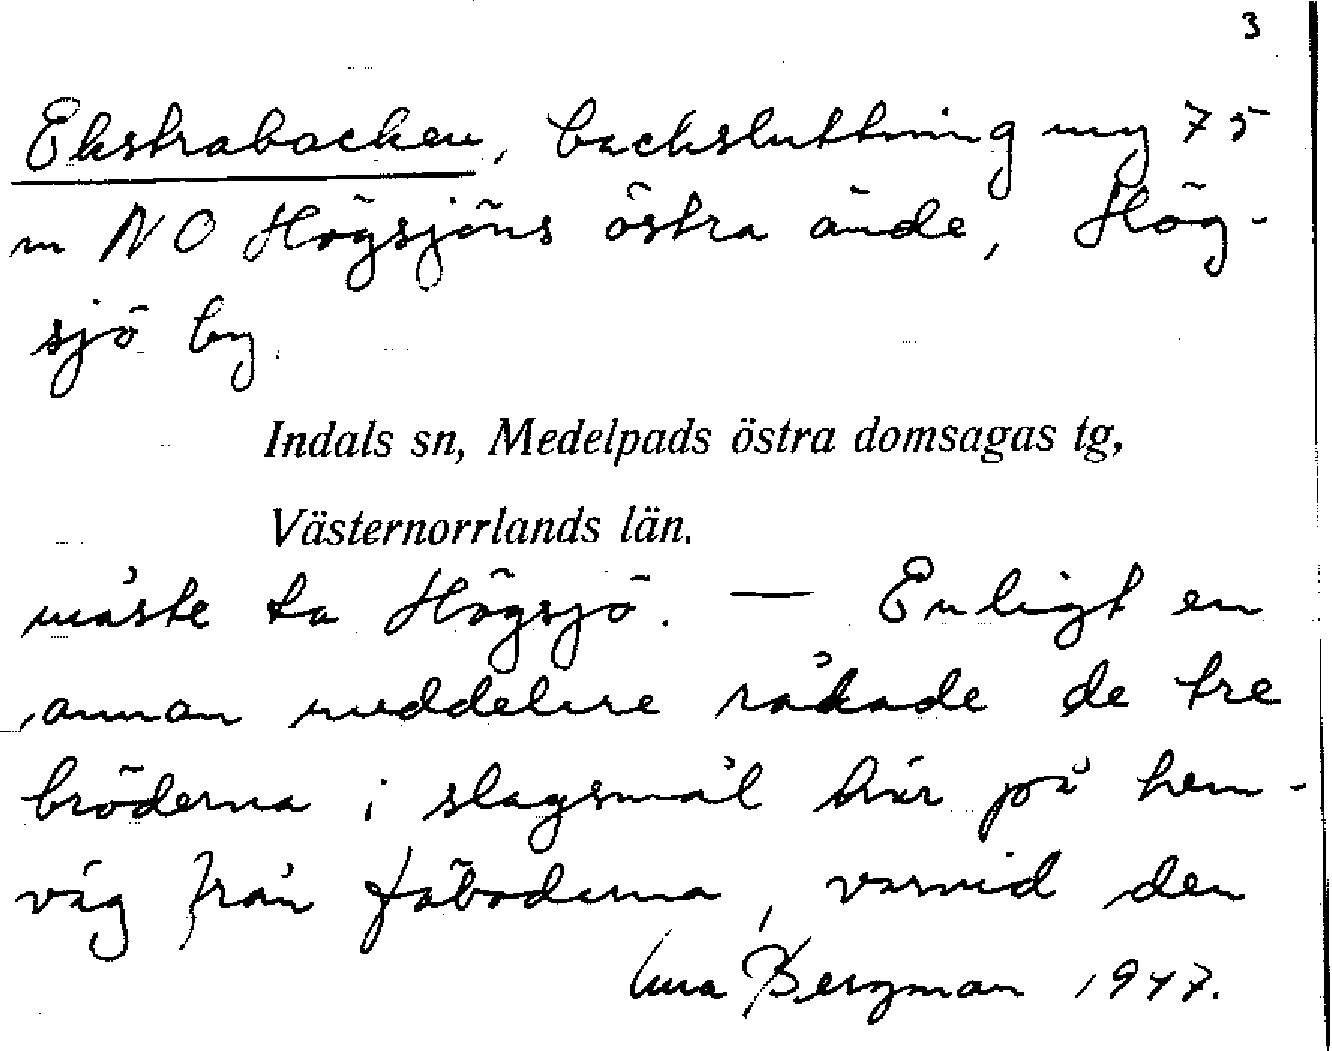 3
Ekstrabacken, backsluttning my 75
m NO Högsjöns östra ände, Hög-
sjö by.
Indals sn, Medelpads östra domsagas tg,
Västernorrlands län.
måste ta Högsjö. — Enligt en
annan meddelare råkade de tre
bröderna i slagsmål här på hem-
väg från fäboderna, varvid den
Bergman 1947.